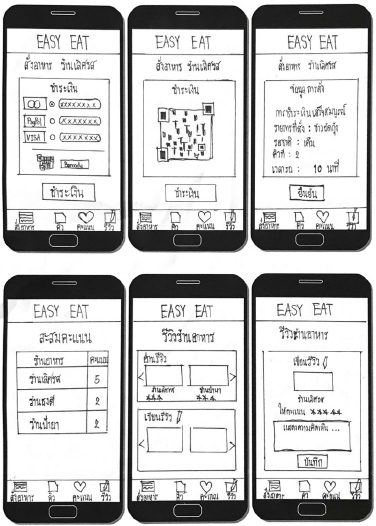 EASY EAT
สั่งอาหาร ร้านเลิศรส
ชำระเงิน
xxxxxxx
PayPal
VISA
Barcode
ชำระเงิน
สั่งอาหาร คิว คะแนน รีวิว
EASY EAT
สั่งอาหาร ร้านเลิศรส
ชำระเงิน
ชำระเงิน
สั่งอาหาร คิว คะแนน รีวิว
EASY EAT
สั่งอาหาร ร้านเลิศรส
ข้อมูลการสั่ง
การชำระเงินเสร็จสมบูรณ์
รายการที่สั่ง : ข้าวผัดกุ้ง
รสชาติ : เค็ม
คิวที่ : 2
เวลารอ : 10 นาที
ยืนยัน
สั่งอาหาร คิว คะแนน รีวิว
EASY EAT
สะสมคะแนน
ร้านอาหาร คะแนน
ร้านเลิศรส 5
2
2
สั่งอาหาร คิว คะแนน รีวิว
EASY EAT
รีวิวร้านอาหาร
อ่านรีวิว
ร้านเลิศรส
เขียนรีวิว
สั่งอาหาร คิว คะแนน รีวิว
EASY EAT
รีวิวร้านอาหาร
เขียนรีวิว
ร้านเลิศรส
ให้คะแนน
แสดงความคิดเห็น ...
บันทึก
สั่งอาหาร คิว คะแนน รีวิว